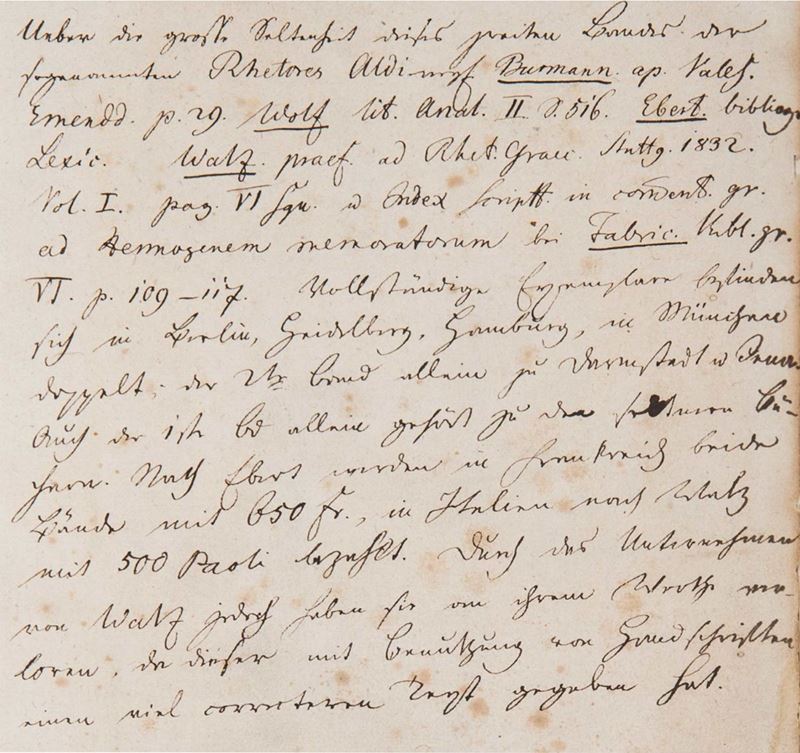 Ueber die grosse Seltenheit dieses zweiten Bandes der
sogenannten Rhetores Aldi vgl. Burmann. ap. Vales.
Emendd. p. 29. Wolf lit. Anal. II S. 516. Ebert. bibliogr.
Lexic. Walz. praef. ad Rhet. Graec. Stuttg. 1832.
Vol. I. pag. VI sqn. u Index scriptt. in coment. gr.
ad Hermogenem memoratorum bei Fabric. Bibl. gr.
VI. p. 109–117. Vollständige Exemplare befinden
sich in Berlin, Heidelberg, Hamburg, in München
doppelt; der 2te Band allein zu Darmstadt u Jena.
Auch der 1ste Bd allein gehört zu den seltnern Bü-
chern. Nach Ebert werden in Frankreich beide
Bände mit 650 Fr., in Italien nach Walz
mit 500 Paoli bezahlt. Durch das Unternehmen
von Walz jedoch haben sie an ihrem Werthe ver-
loren, da dieser mit Benutzung von Handschriften
einen viel correcteren Text gegeben hat.